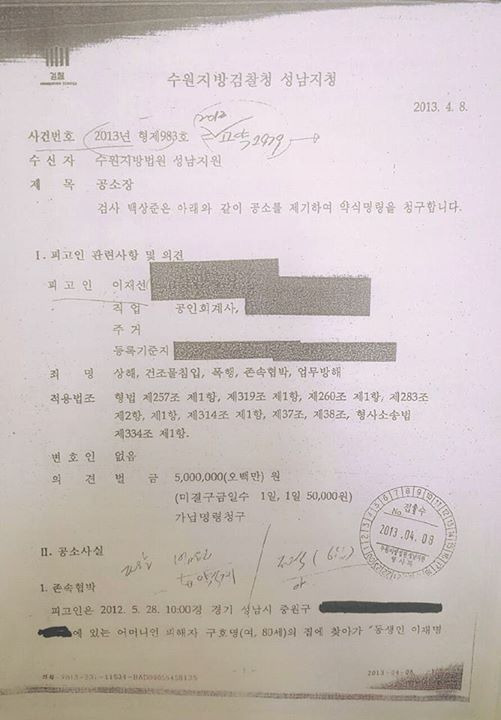 검찰
수원지방검찰청 성남지청
2013. 4. 8.
사건번호 2013년 형제983호
수 신 자 수원지방법원 성남지원
제 목 공소장
검사 백상준은 아래와 같이 공소를 제기하여 약식명령을 청구합니다.
I. 피고인 관련사항 및 의견
피 고 인 이재선
직 업 공인회계사,
주 거
등록기준지
죄 명 상해, 건조물침입, 폭행, 존속협박, 업무방해
적용법조 형법 제257조 제1항, 제319조 제1항, 제260조 제1항, 제283조
제2항, 제1항, 제314조 제1항, 제37조, 제38조, 형사소송법
제334조 제1항.
변 호 인 없음
의 견 벌 금 5,000,000(오백만) 원
(미결구금일수 1일, 1일 50,000원)
가납명령청구
No 접수
2013. 04. 08
II. 공소사실
1. 존속협박
피고인은 2012. 5. 28. 10:00경 경기 성남시 중원구
에 있는 어머니인 피해자 구호명(여, 80세)의 집에 찾아가 "동생인 이재명